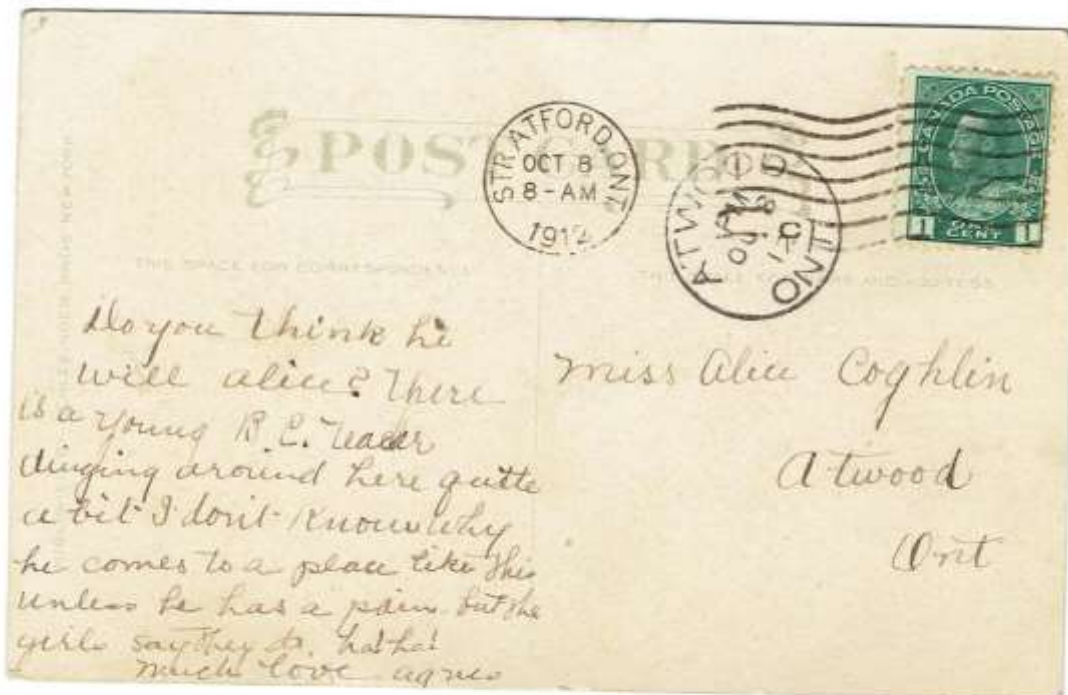 POST CARD
STRATFORD, ONT.
OCT 8
8-AM
1912
ATWOOD
ONT
CANADA POSTAGE
1 ONE CENT 1
THIS SPACE FOR CORRESPONDENCE
AND ADDRESS
Do you think he
will alice? There
is a young R.C.
dinging around here quite
a bit I don't know why
he comes to a place like this
unless he has a pain but the
girls say they do. ha! ha!
much love agnes
Miss Alice Coghlin
Atwood
Ont